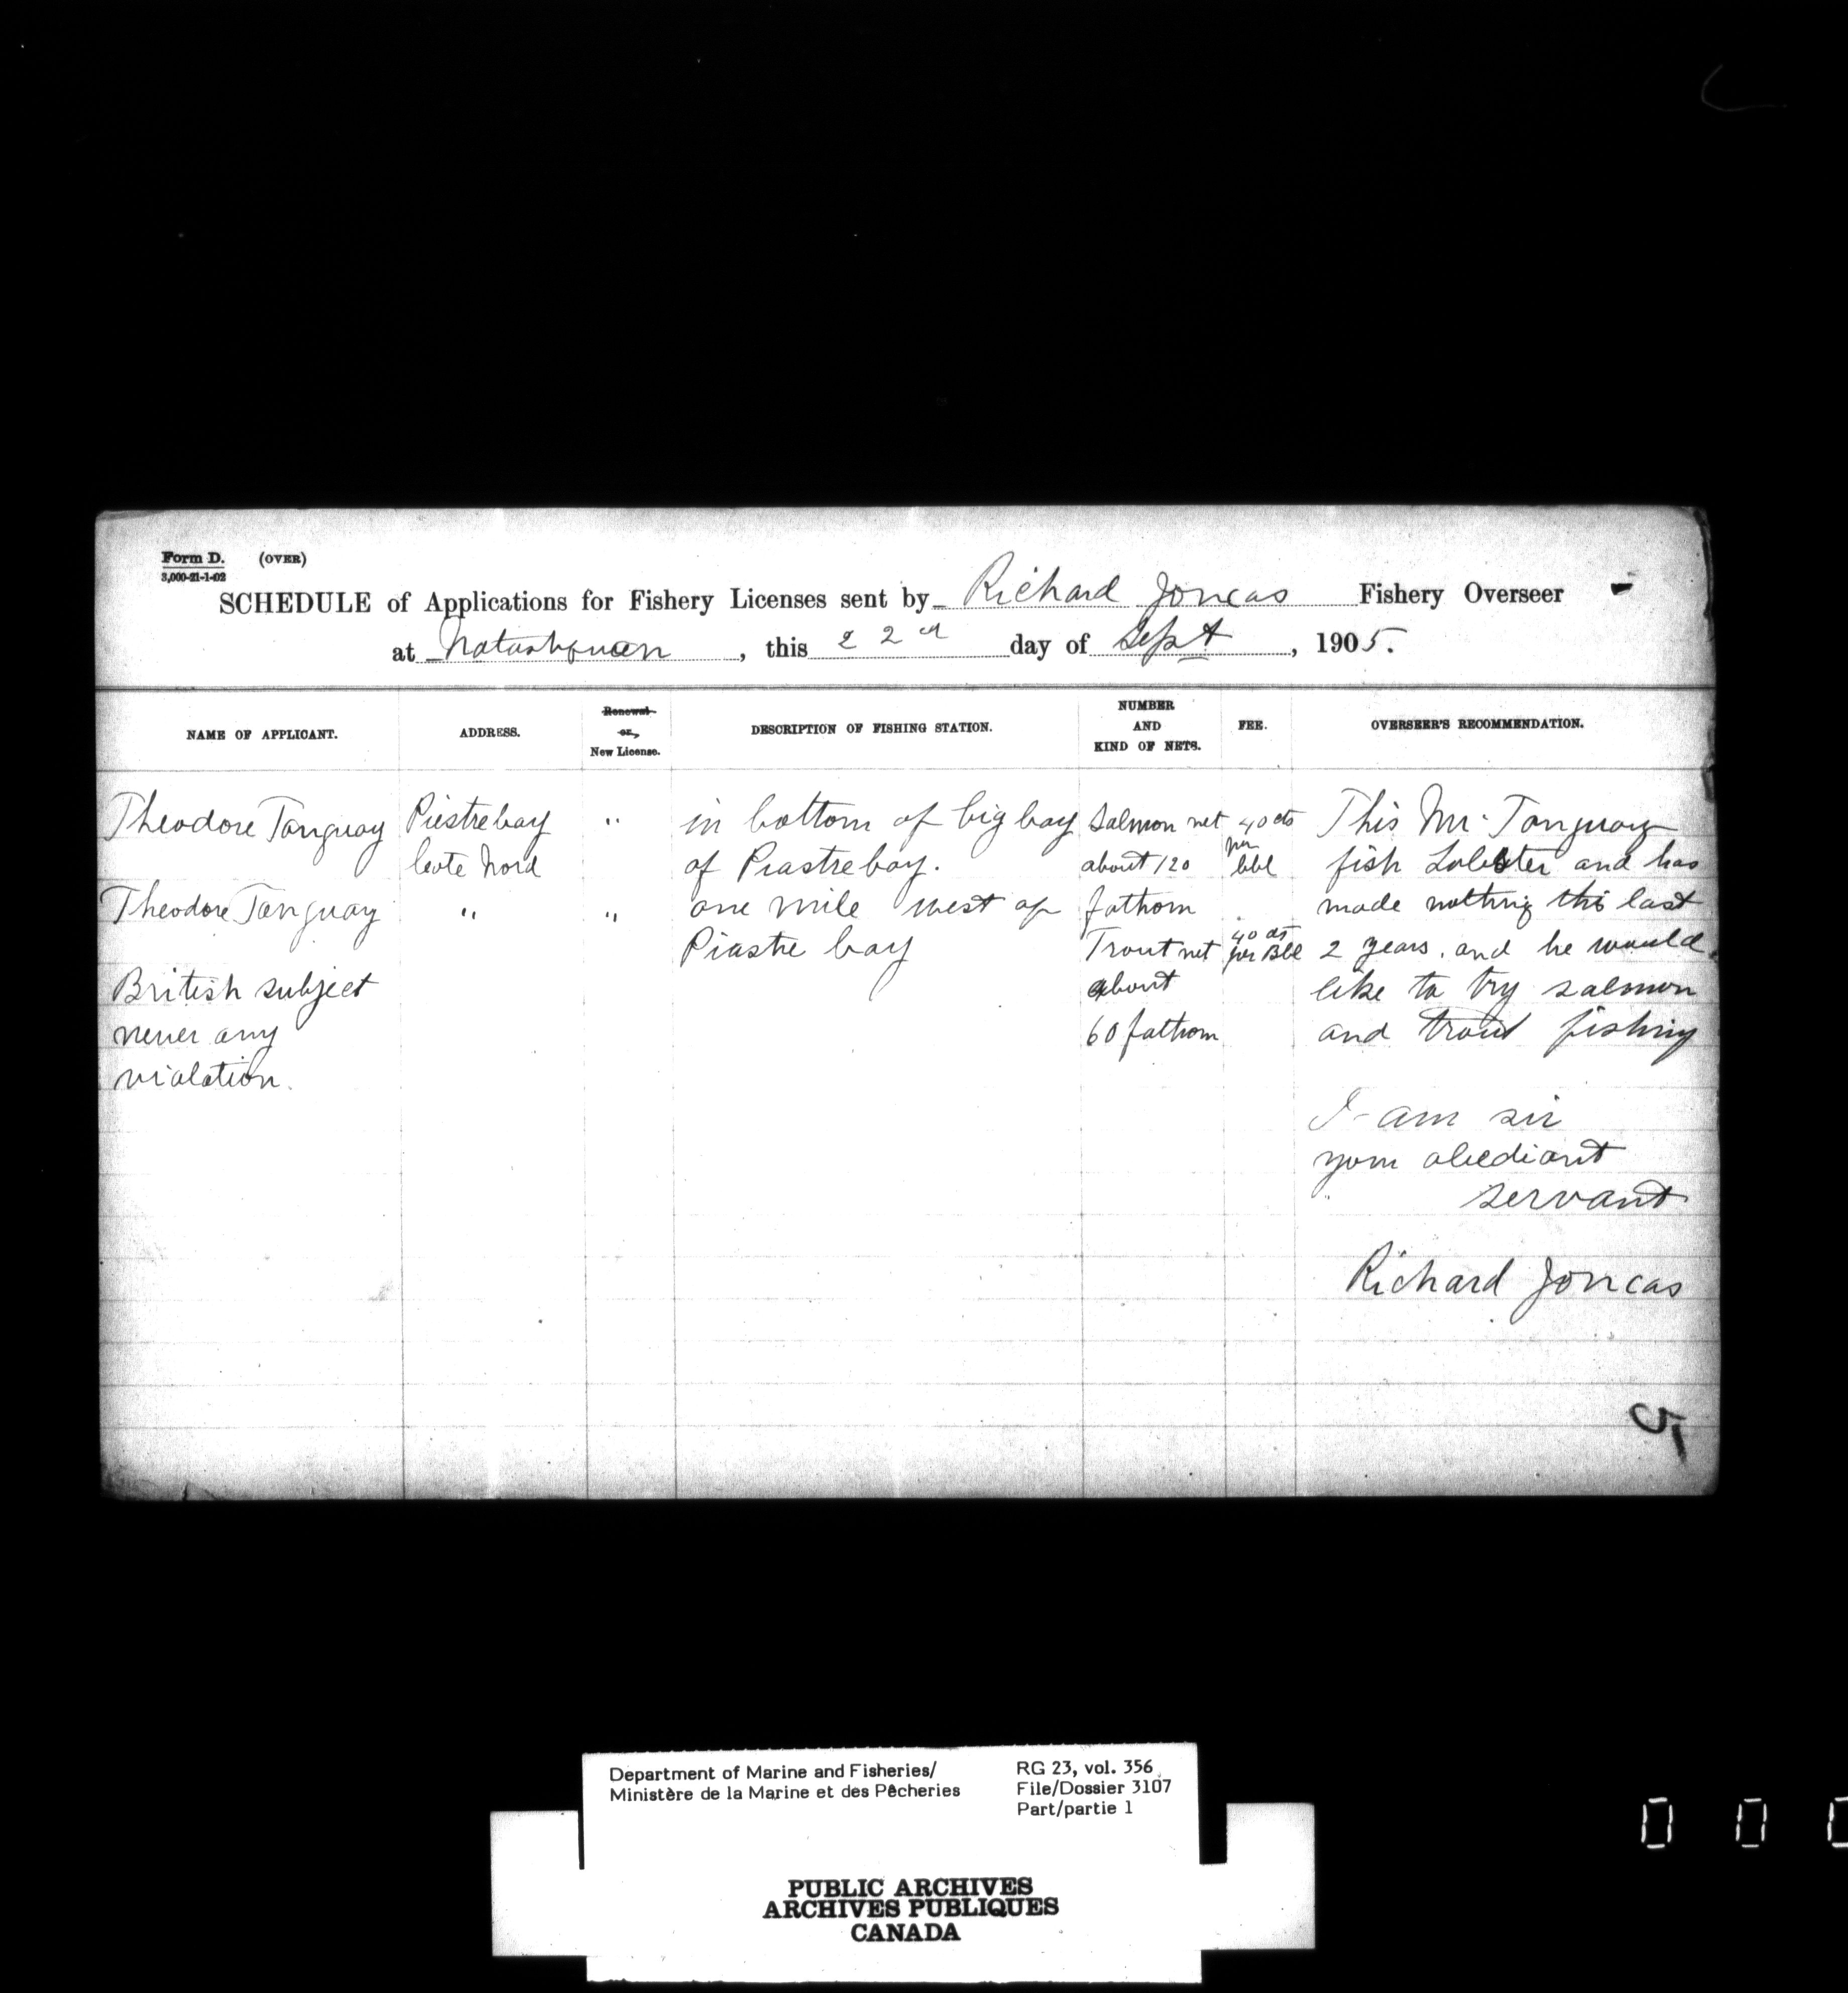 Form D. (OVER)
3,000-21-1-02
SCHEDULE of Applications for Fishery Licenses sent by Richard Joncas Fishery Overseer
at Natashquan, this 22nd day of Sept, 1905.
NAME OF APPLICANT.
ADDRESS.
Renewal
or,
New License.
DESCRIPTION OF FISHING STATION.
NUMBER
AND
KIND OF NETS.
FEE.
OVERSEER'S RECOMMENDATION.
Theodore Tanguay
Theodore Tanguay
British subject
never any
violation.
Piestrebay
Cote Nord
"
"
"
in bottom of big bay
of Piastrebay.
one mile west of
Piastre bay
Salmon net
about 120
fathom
Trout net
about
60 fathom
40 cts
per
bbl
40 cts
per Bbl
This Mr. Tanguay
fish Lobster and has
made nothing this last
2 years. and he would
like to try salmon
and trout fishing
I am sir
your obediant
servant
Richard Joncas
Department of Marine and Fisheries/
Ministère de la Marine et des Pêcheries
RG 23, vol. 356
File/Dossier 3107
Part/partie 1
PUBLIC ARCHIVES
ARCHIVES PUBLIQUES
CANADA
0 0